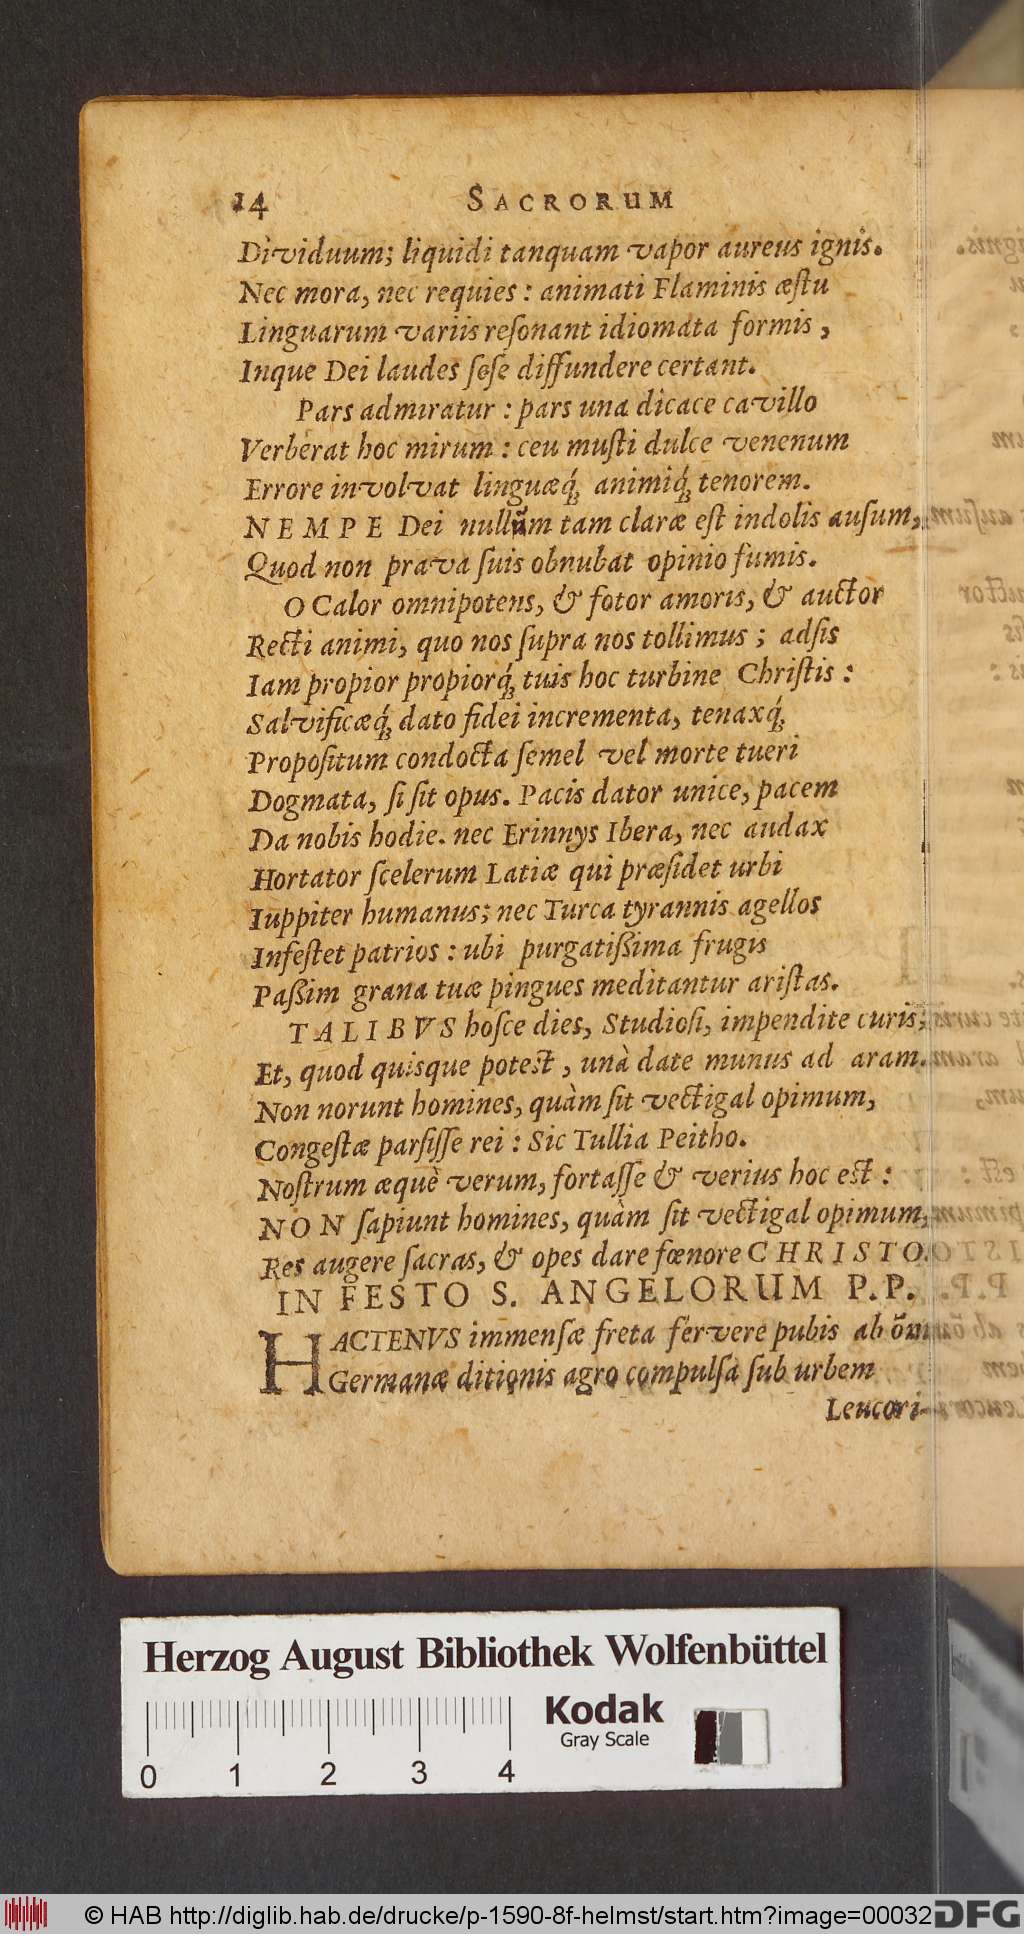 14 SACRORUM
Dividuum; liquidi tanquam vapor aureus ignis.
Nec mora, nec requies : animati Flaminis æſtu
Linguarum variis reſonant idiomata formis ,
Inque Dei laudes ſeſe diffundere certant.
Pars admiratur : pars una dicace cavillo
Verberat hoc mirum : ceu muſti dulce venenum
Errore involvat linguæq́; animiq́; tenorem.
NEMPE Dei nullum tam claræ eſt indolis auſum,
Quod non prava ſuis obnubat opinio fumis.
O Calor omnipotens, & fotor amoris, & auctor
Recti animi, quo nos ſupra nos tollimus ; adſis
Iam propior propiorq́; tuis hoc turbine Chriſtis :
Salvificæq́; dato fidei incrementa, tenaxq́;
Propoſitum condocta ſemel vel morte tueri
Dogmata, ſi ſit opus. Pacis dator unice, pacem
Da nobis hodie. nec Erinnys Ibera, nec audax
Hortator ſcelerum Latiæ qui præſidet urbi
Iuppiter humanus; nec Turca tyrannis agellos
Infeſtet patrios : ubi purgatißima frugis
Paßim grana tuæ pingues meditantur ariſtas.
TALIBVS hoſce dies, Studioſi, impendite curis;
Et, quod quisque poteſt , unà date munus ad aram.
Non norunt homines, quàm ſit vectigal opimum,
Congeſtæ parſiſſe rei : Sic Tullia Peitho.
Noſtrum æquè verum, fortaſſe & verius hoc eſt :
NON ſapiunt homines, quàm ſit vectigal opimum,
Res augere ſacras, & opes dare fœnore CHRISTO.
IN FESTO S. ANGELORUM P.P.
HACTENVS immenſæ freta fervere pubis ab õm
Germanæ ditionis agro compulſa ſub urbem
Leucori-
Herzog August Bibliothek Wolfenbüttel
Kodak
Gray Scale
0 1 2 3 4
© HAB http://diglib.hab.de/drucke/p-1590-8f-helmst/start.htm?image=00032
DFG